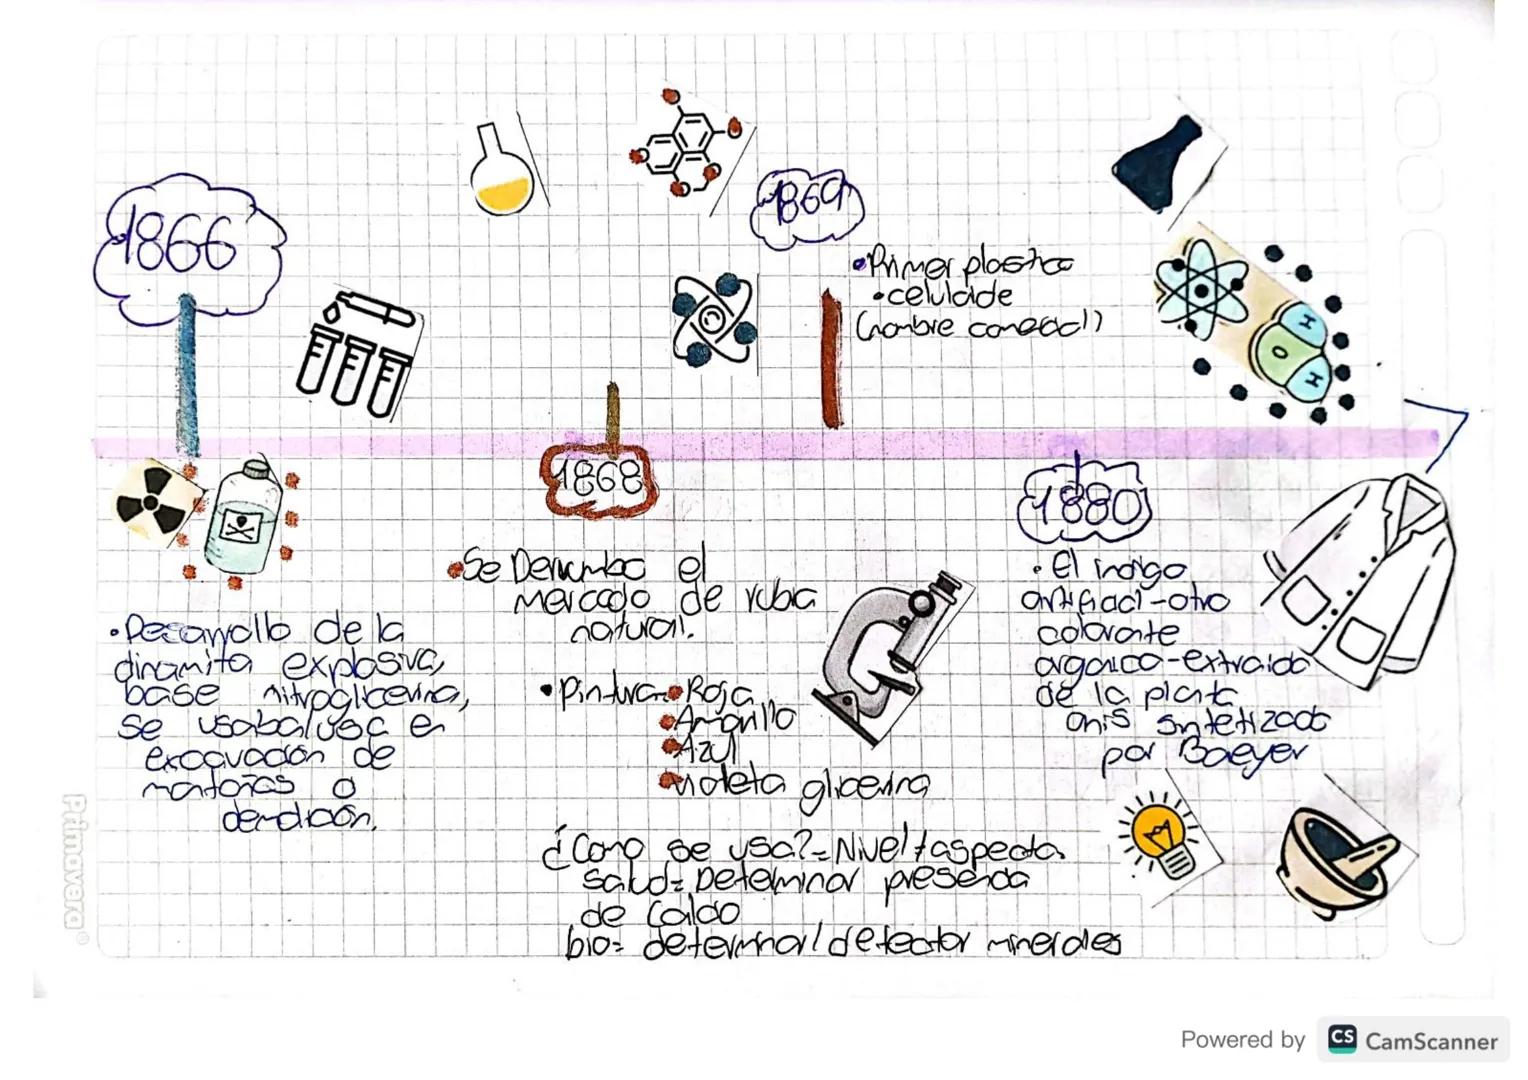 1866
1869
•Primer plastico
•celuloide
(nombre comercial)
H
O
H
1868
1880
•Se Derrumbo el
mercado de rubia
natural.
•Pintura •Roja
•Amarillo
•Azul
•violeta glicerina
¿Como se usa?=Nivel/aspecta
salud= Determinar presencia
de Caldo
bio= determinar/detector minerales
•Desarrollo de la
dinamita explosiva,
base nitroglicerina,
se usaba/usa en
excavación de
montañas o
demolición.
• El indigo
artificial-otro
colorante
organico-extraido
de la planta
anis sintetizado
por Baeyer
Primavera®
Powered by CS CamScanner